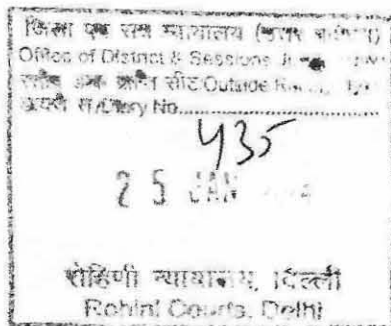 जिला एवं सत्र न्यायालय (उत्तर
Office of District & Sessions
Outside
डायरी सं./Diary No.
435
25 JAN
रोहिणी न्यायालय, दिल्ली
Rohini Courts, Delhi